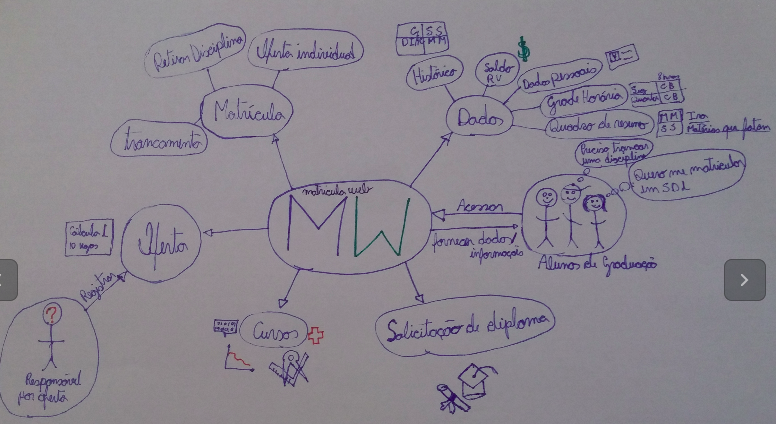 Retirar Disciplina
Oferta individual
Matrícula
trancamento
Histórico
Saldo
RU
$
Dados Pessoais
Grade Horária
Quadro de resumo
MM
SS
Ira
Matérias que faltam
Dados
Preciso trancar
uma disciplina
Quero me matricular
em SDL
matricula web
MW
Acessar
fornecer dados/
informações
Alunos de Graduação
Cálculo 1
10 vagas
Oferta
Registrar
?
Responsável
por oferta
Cursos
Solicitação de diploma